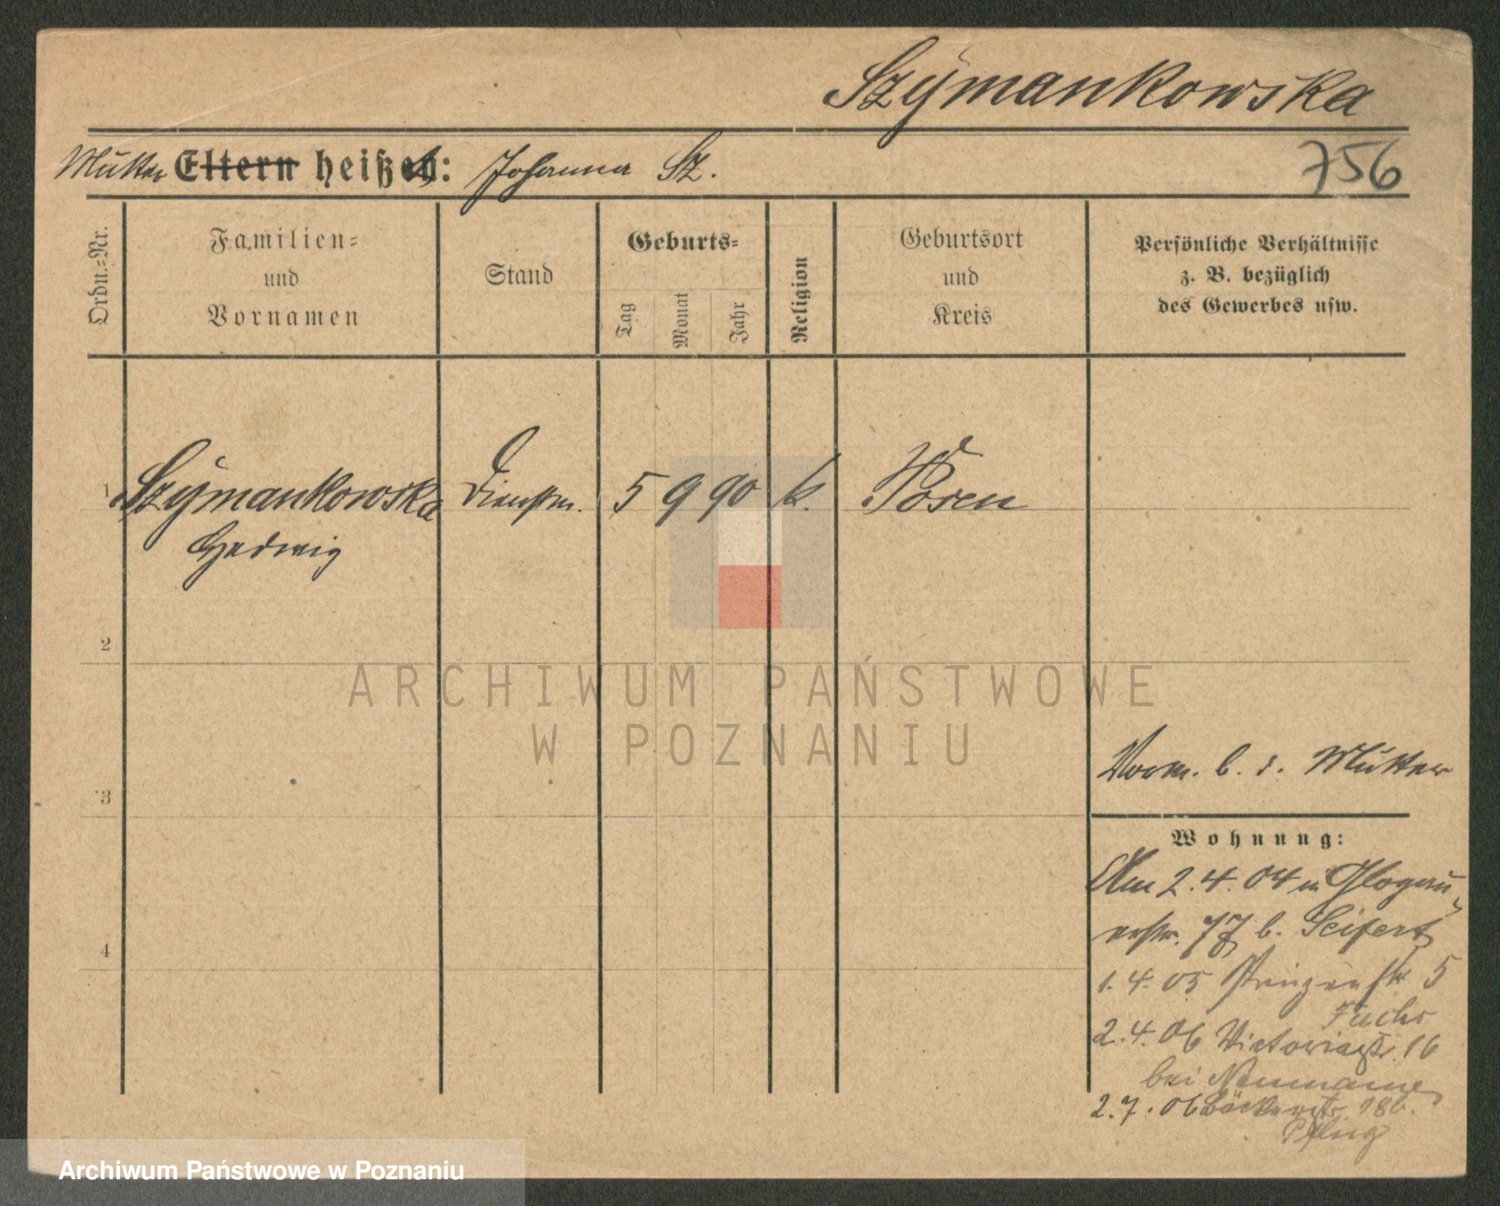 Szymankowska
Mutter Eltern heißen: Johanna Sz.
756
Ordn.=Nr.
Familien=
und
Vornamen
Stand
Geburts=
Tag
Monat
Jahr
Religion
Geburtsort
und
Kreis
Persönliche Verhältnisse
z. B. bezüglich
des Gewerbes usw.
1 Szymankowska Dienstm. 5 9 90 k. Posen
Hedwig
2
ARCHIWUM PAŃSTWOWE
W POZNANIU
Vorm. b. d. Mutter
3
Wohnung:
Am 2.4.04 n. Glogau-
erstr. 77 b. Seifert
4
1.4.05 Prinzenstr 5
Fuchs
2.4.06 Victoriastr. 16
bei Neumann
2.7.06 Bäckerstr
Pflug
Archiwum Państwowe w Poznaniu